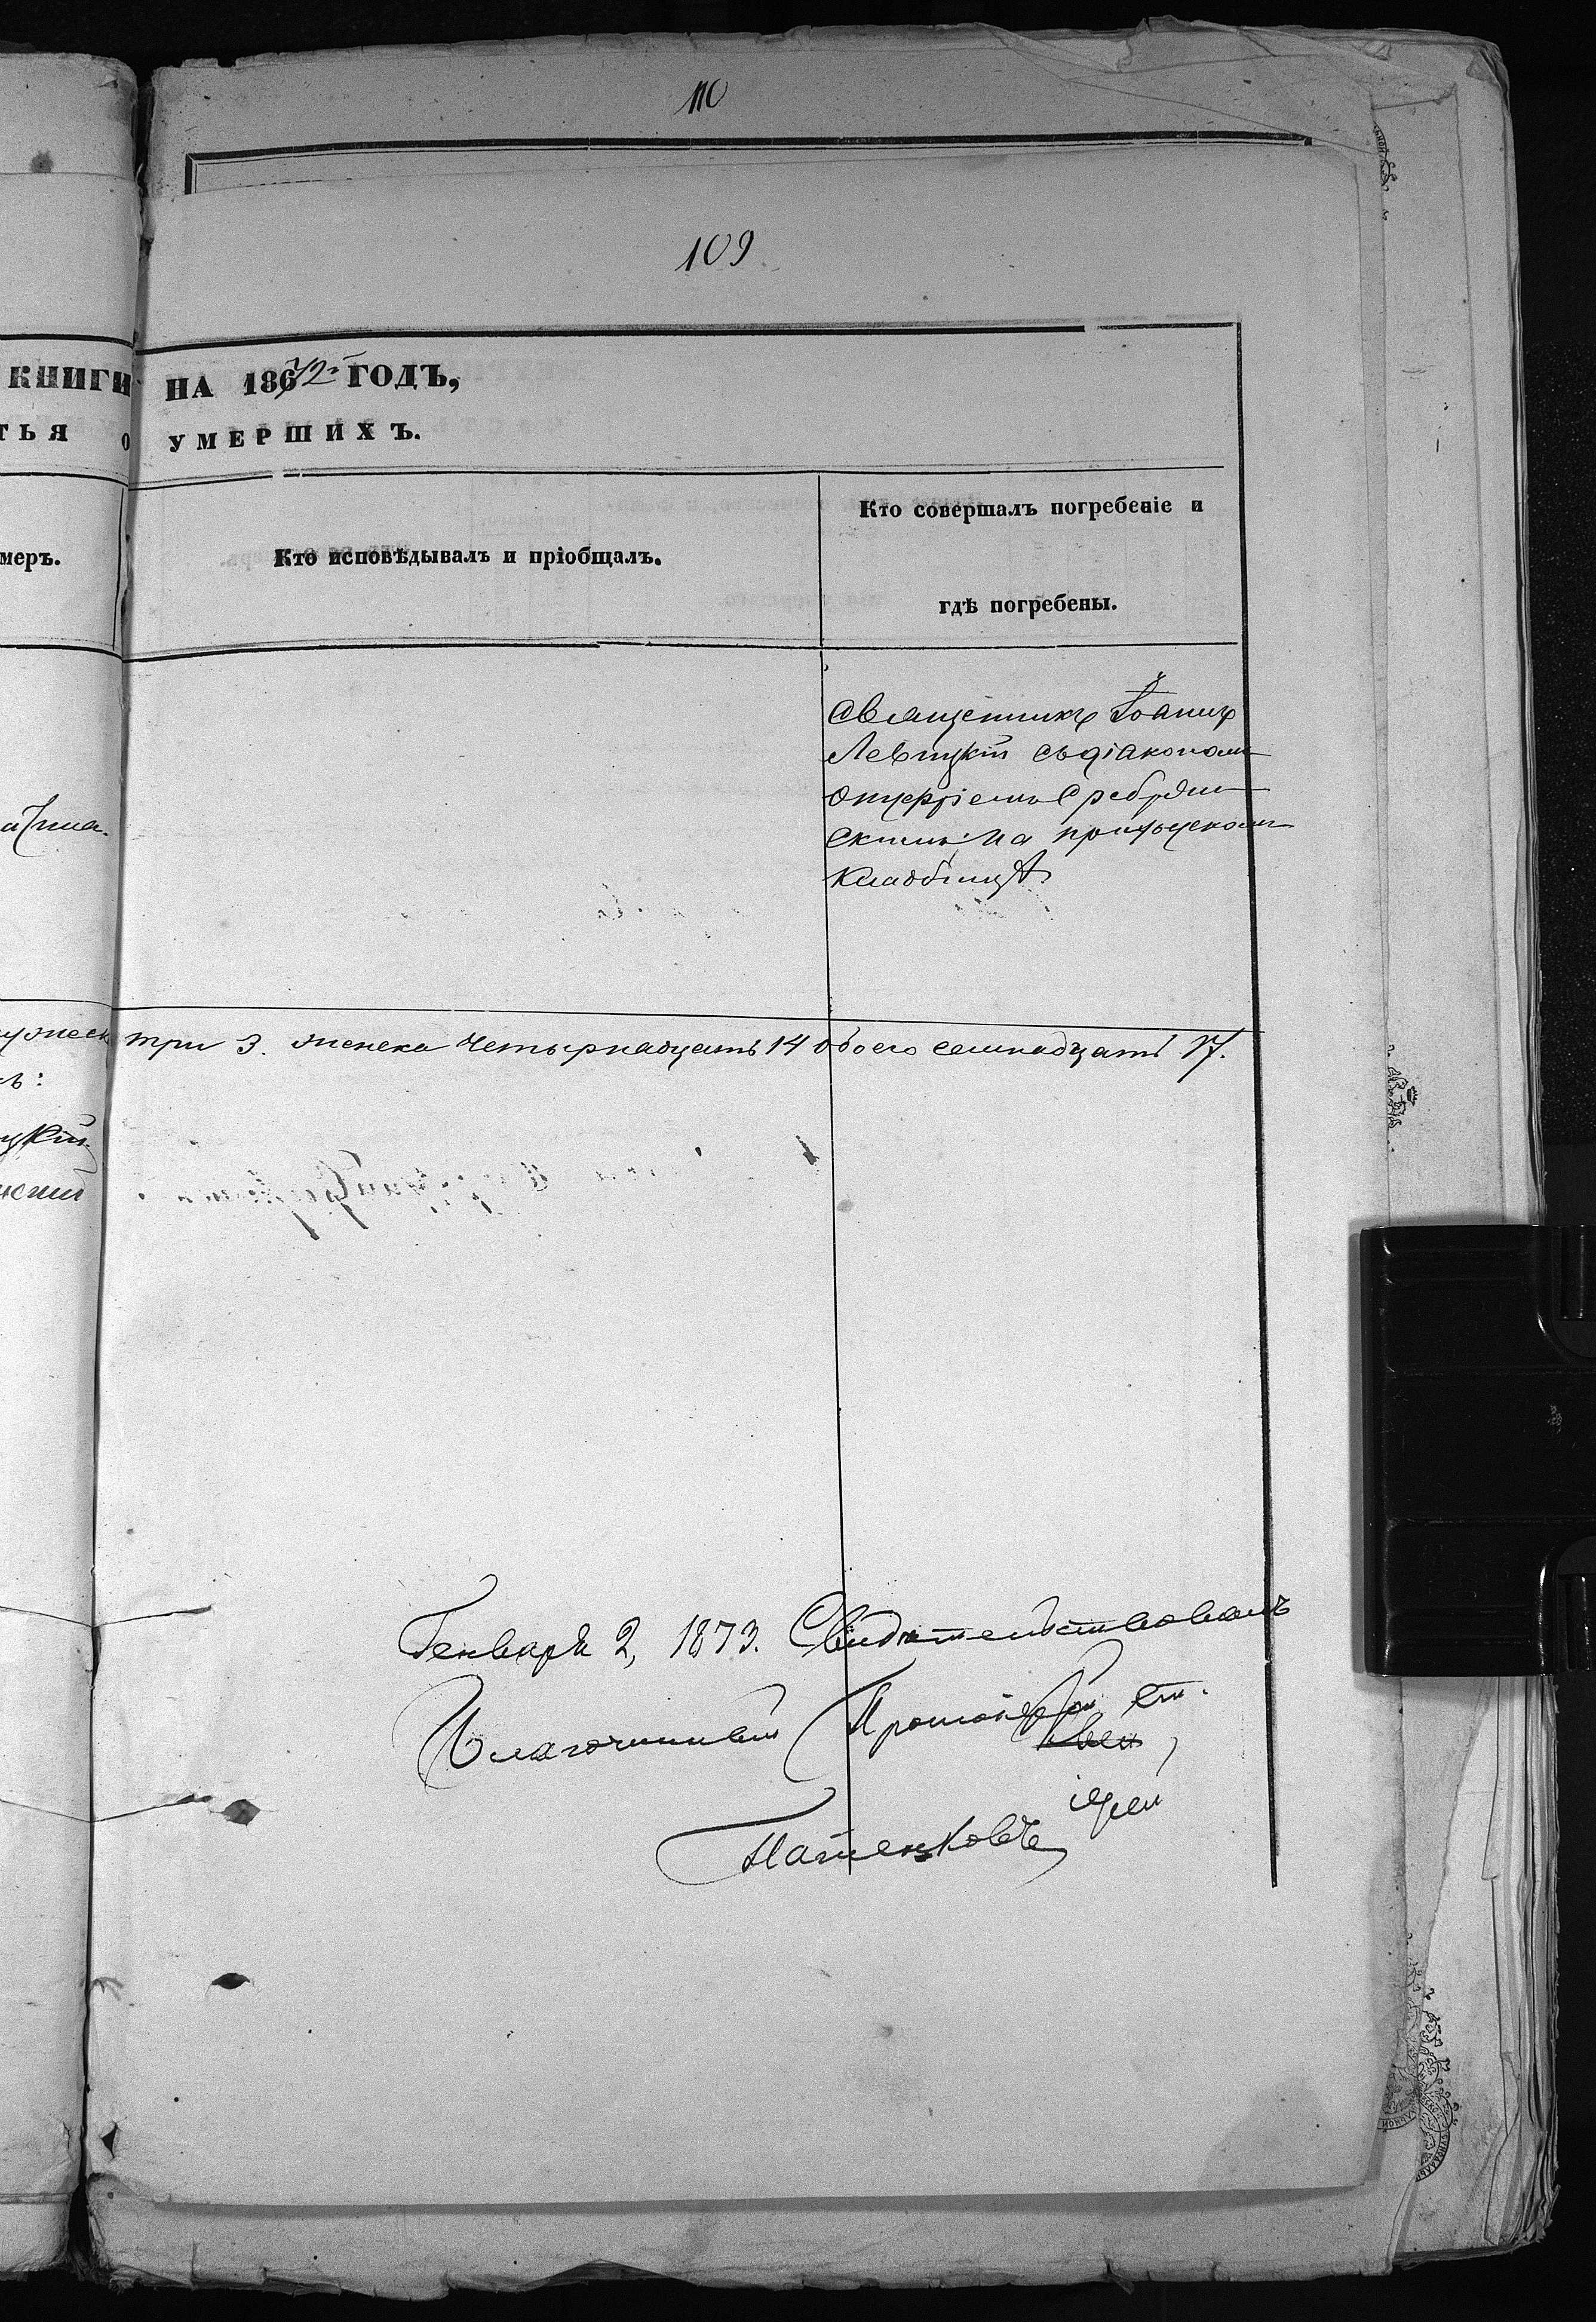 110
109
КНИГИ НА 1872 ГОДЪ,
ТЬЯ О УМЕРШИХЪ.
меръ.
Кто исповѣдывалъ и пріобщалъ.
Кто совершалъ погребеніе и
гдѣ погребены.
Священникъ Іоаннъ
Левицкій съ діакономъ
Онуфріемъ Сребрян
скимъ на приходскомъ
кладбищѣ
три 3. женска четырнадцать 14 обоего семнадцать 17.
цкій
нскій
Генваря 2, 1873. Свидѣтельствовалъ
Благочинный Протоіерей
іерей